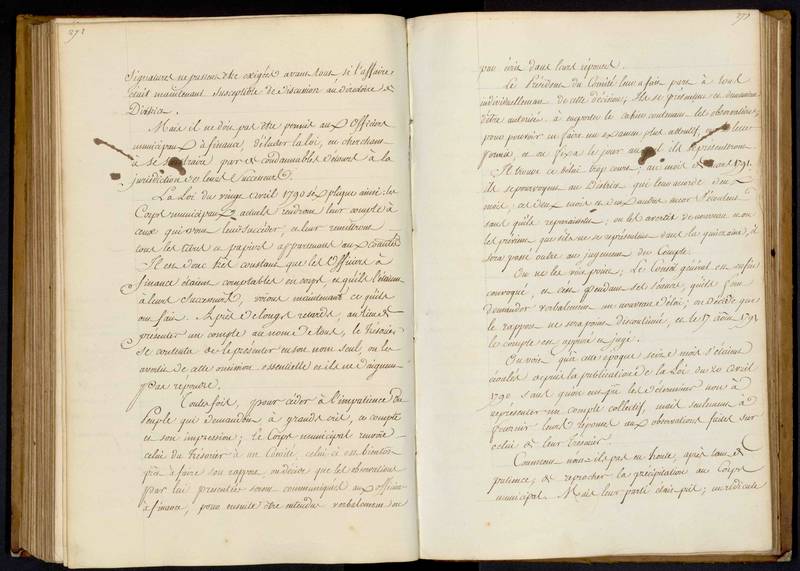 signatures ne pussent être exigées avant tout si l'affaire
était maintenant susceptible de discussion au directoire de
District.
Mais il ne doit pas être permis aux officiers
municipaux de finance, d'éluder la loi, en cherchant
à se soustraire par de condamnables détours à la
jurisdiction de leurs successeurs.
La Loi du vingt avril 1790 s'explique ainsi: les
Corps municipaux actuels rendront leur compte à
ceux qui vont leur succéder, et leur remettront
tous les titres et papiers appartenant aux Comunités
Il est donc très constant que les officiers de
finance étaient comptables en corps, et qu'ils l'étaient
à leurs successeurs, voions maintenant ce qu'ils
ont fait. Après de longs retards, au lieu de
présenter un compte au nom de tous, le trésorier
se contente de le présenter en son nom seul, on les
avertit de cette omission essentielle et ils ne daignent
pas répondre.
Toutefois, pour céder à l'impatience du
Peuple qui demandait à grands cris, ce compte
et son impression; le Corps municipal renvoie
celui du trésorier à un Comité, celui-ci est bientôt
prêt à faire son rapport, on décide que les observations
par lui présentées seront communiquées aux officiers
de finance, pour ensuite être entendus verbalement ou
277
par écrit dans leurs réponses.
Le Président du Comité leur a fait part à tous
individuellement de cette décision; ils se présentent et demandent
d'être autorisés à emporter le cahier contenant les observations,
pour pouvoir en faire un examen plus attentif, on le leur
permit, et on fixa le jour auquel ils se présenteront
Ils trouvent ce délai trop court; au mois de 1791.
ils se pourvoyent au District qui leur accorde deux
mois, ces deux mois et deux autres encor s'écoulent
sans qu'ils reparaissent; on les avertit de nouveau et on
les prévient que s'ils ne se représentent dans la quinzaine, il
sera passé outre au jugement du Compte.
On ne les voit point; Le Conseil général est enfin
convoqué, et c'est pendant ses séances, qu'ils font
demander verbalement un nouveau délai; on décide que
le rapport ne sera point discontinué, et le 17 août 1791
le compte est apuré et jugé.
On voit qu'à cette époque seize mois s'étaient
écoulés depuis la publication de la Loi du 20 avril
1790, sans qu'on eut pu les déterminer non à
représenter un compte collectif, mais seulement à
fournir leurs réponses aux observations faites sur
celui de leur trésorier.
Comment n'ont-ils pas eu honte, après tant de
patience, de reprocher la précipitation au Corps
municipal. Mais leur parti était pris;